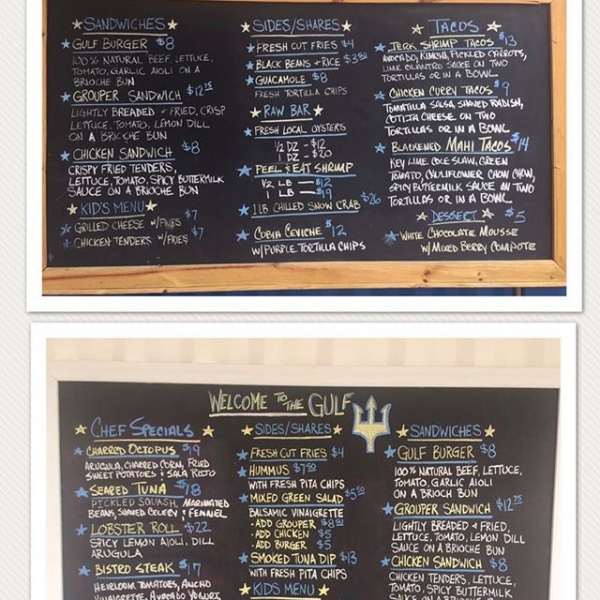 SANDWICHES
GULF BURGER $8
100% NATURAL BEEF, LETTUCE,
TOMATO, GARLIC AIOLI ON A
BRIOCHE BUN
GROUPER SANDWICH $12.25
LIGHTLY BREADED + FRIED, CRISP
LETTUCE, TOMATO, LEMON DILL
ON A BRIOCHE BUN
CHICKEN SANDWICH $8
CRISPY FRIED TENDERS,
LETTUCE, TOMATO, SPICY BUTTERMILK
SAUCE ON A BRIOCHE BUN
KID'S MENU
GRILLED CHEESE W/FRIES $7
CHICKEN TENDERS W/FRIES $7
SIDES/SHARES
FRESH CUT FRIES $4
BLACK BEANS + RICE $3.50
GUACAMOLE $8
FRESH TORTILLA CHIPS
RAW BAR
FRESH LOCAL OYSTERS
1/2 DZ - $12
1 DZ - $20
PEEL & EAT SHRIMP
1/2 LB - $12
1 LB - $19
1LB CHILLED SNOW CRAB $26
COBIA CEVICHE $12
W/PURPLE TORTILLA CHIPS
TACOS
JERK SHRIMP TACOS $13
AVOCADO, KIMCHI, PICKLED CARROTS,
LIME CILANTRO SAUCE ON TWO
TORTILLAS OR IN A BOWL
CHICKEN CURRY TACOS $9
TOMATILLO SALSA, SHAVED RADISH,
COTIJA CHEESE ON TWO
TORTILLAS OR IN A BOWL
BLACKENED MAHI TACOS $14
KEY LIME COLE SLAW, GREEN
TOMATO, CAULIFLOWER CHOW CHOW,
SPICY BUTTERMILK SAUCE ON TWO
TORTILLAS OR IN A BOWL
DESSERT $5
WHITE CHOCOLATE MOUSSE
W/ MIXED BERRY COMPOTE
WELCOME TO THE GULF
CHEF SPECIALS
CHARRED OCTOPUS $19
ARUGULA, CHARRED CORN, FRIED
SWEET POTATOES + SALSA ROJO
SEARED TUNA $18
PICKLED SQUASH, MARINATED
BEANS, SHAVED CELERY + FENNEL
LOBSTER ROLL $22
SPICY LEMON AIOLI, DILL
ARUGULA
BISTRO STEAK $17
HEIRLOOM TOMATOES, ANCHO
VINAIGRETTE, AVOCADO YOGURT
SIDES/SHARES
FRESH CUT FRIES $4
HUMMUS $7.50
WITH FRESH PITA CHIPS
MIXED GREEN SALAD $5.50
BALSAMIC VINAIGRETTE
- ADD GROUPER $8.50
- ADD CHICKEN $5
- ADD BURGER $5
SMOKED TUNA DIP $13
WITH FRESH PITA CHIPS
KIDS MENU
SANDWICHES
GULF BURGER $8
100% NATURAL BEEF, LETTUCE,
TOMATO, GARLIC AIOLI
ON A BRIOCH BUN
GROUPER SANDWICH $12.25
LIGHTLY BREADED + FRIED,
LETTUCE, TOMATO, LEMON DILL
SAUCE ON A BRIOCHE BUN
CHICKEN SANDWICH $8
CHICKEN TENDERS, LETTUCE,
TOMATO, SPICY BUTTERMILK
SAUCE ON A BRIOCHE BUN